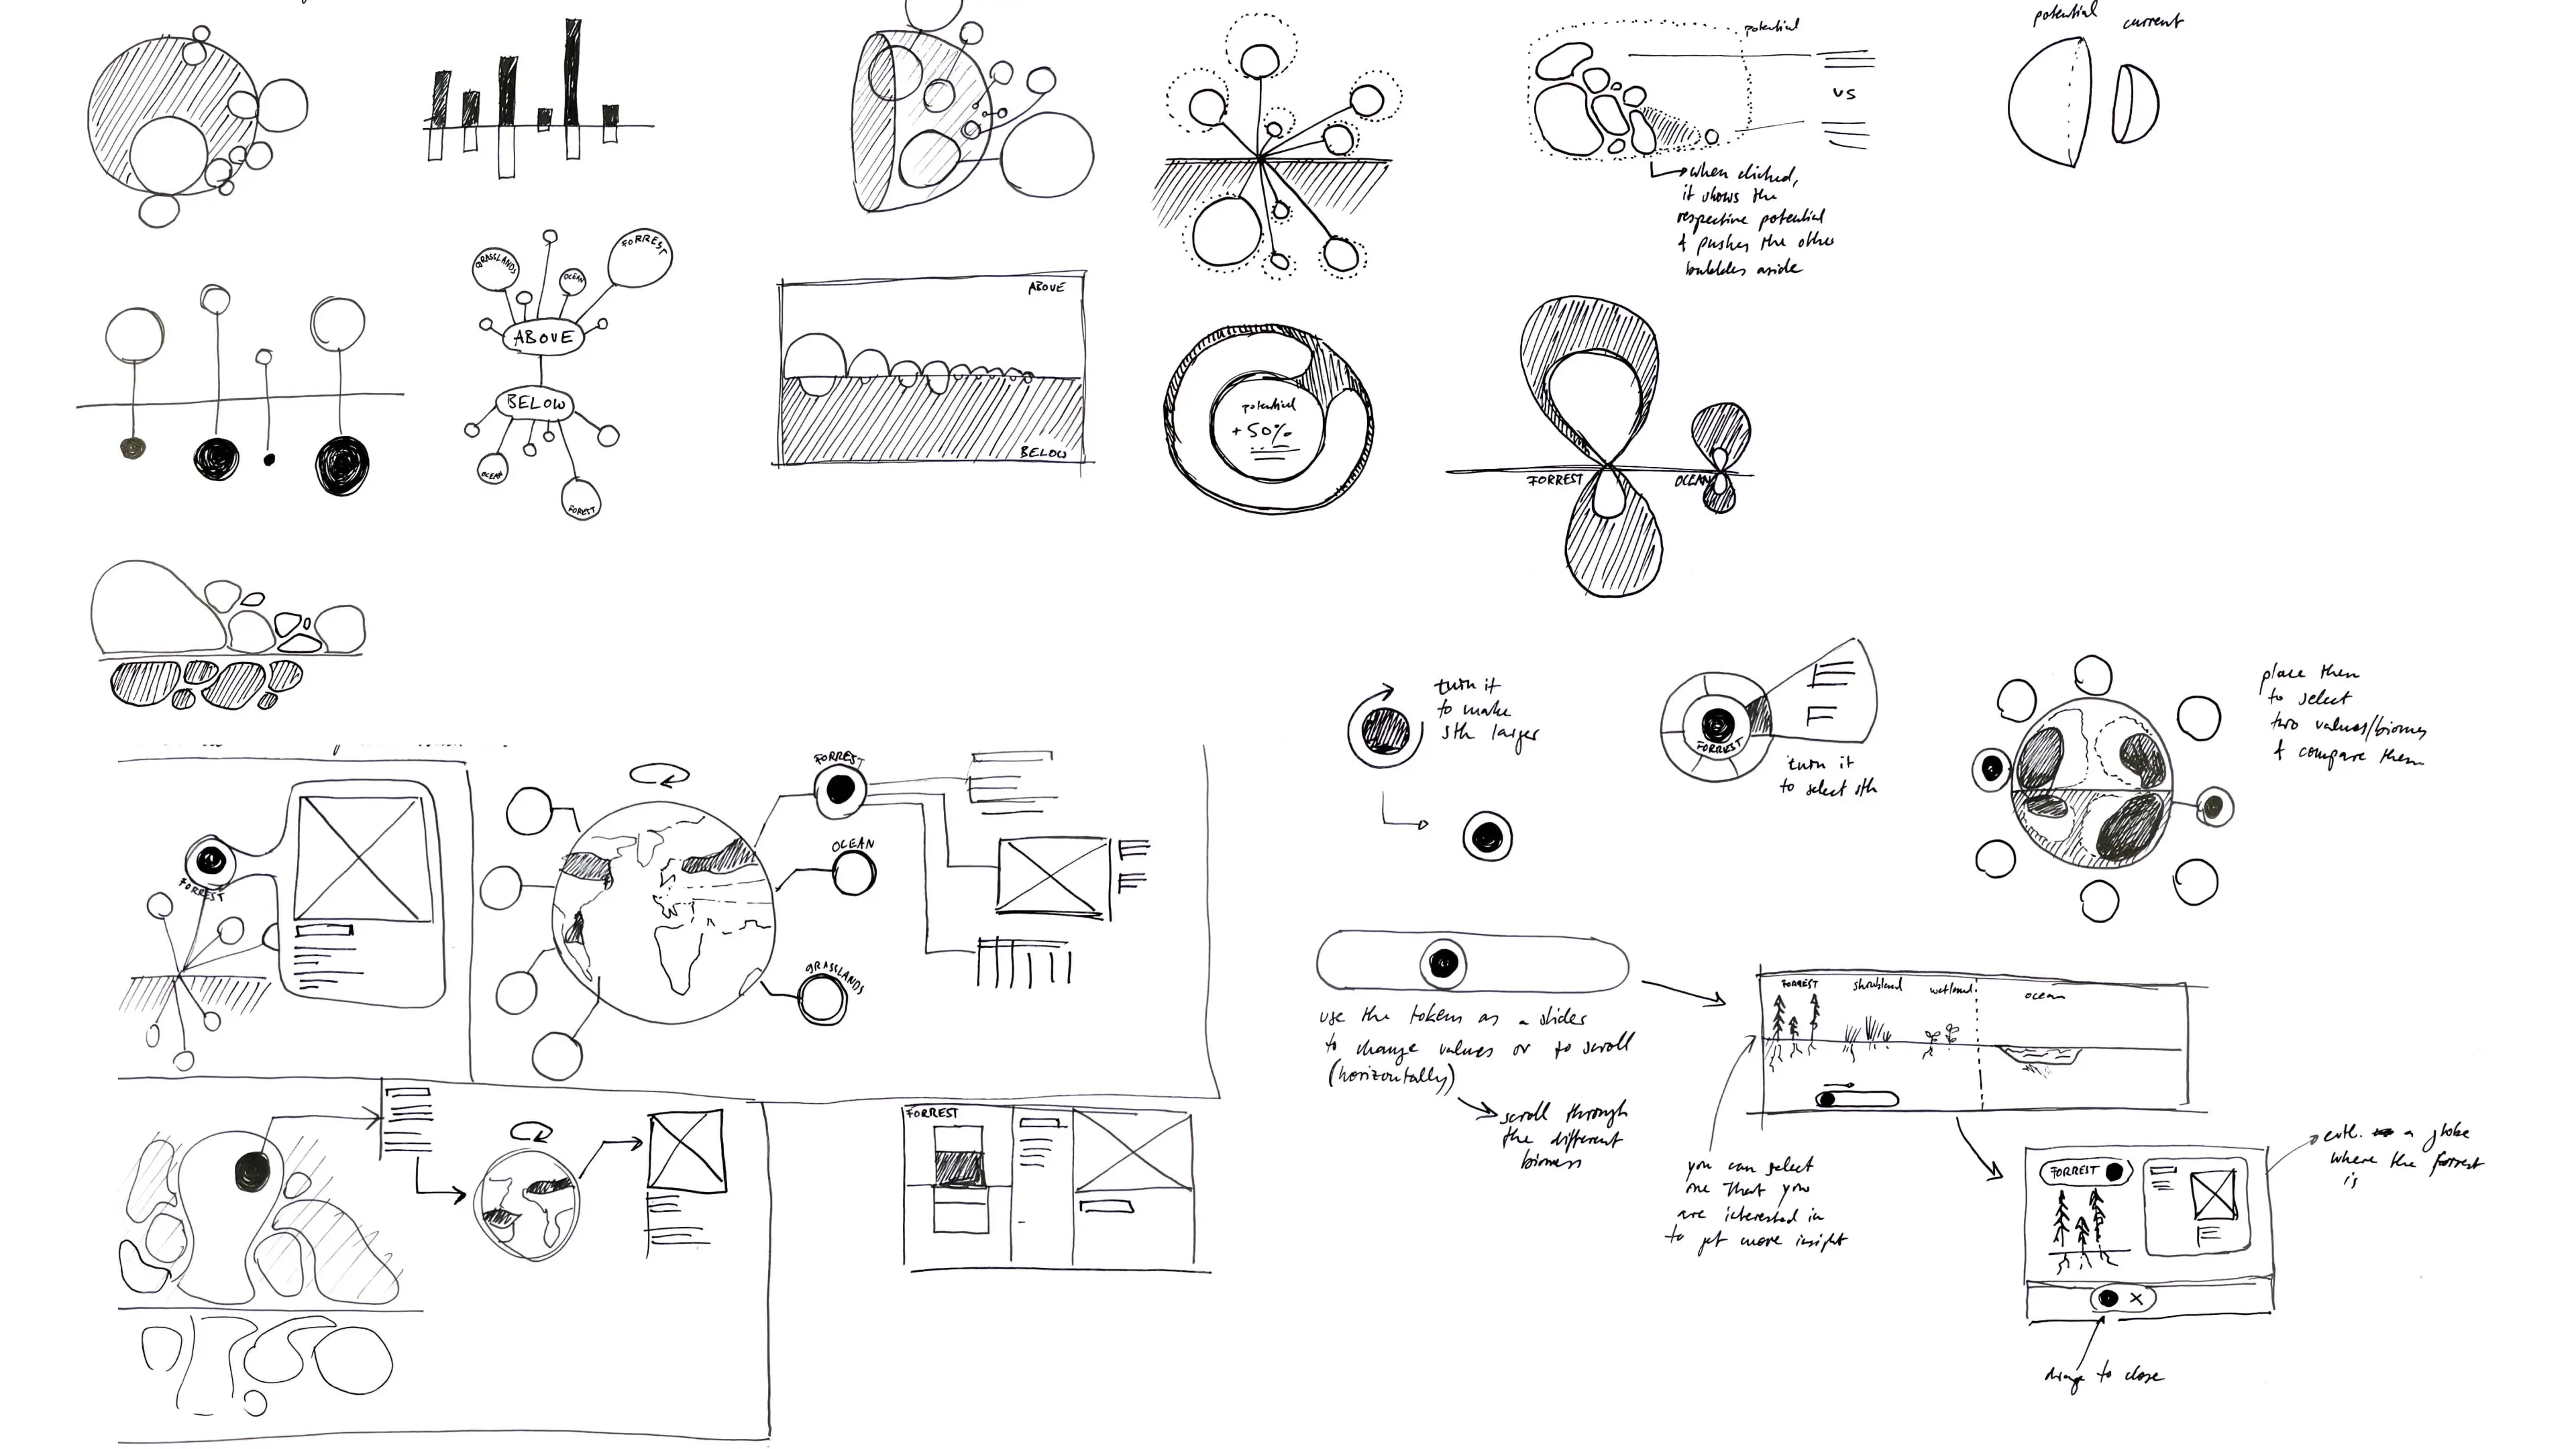 potential
vs
when clicked,
it shows the
respective potential
& pushes the other
bubbles aside
potential
current
GRASSLANDS
OCEAN
FORREST
ABOVE
BELOW
OCEAN
FOREST
ABOVE
BELOW
potential
+50%
FORREST
OCEAN
turn it
to make
sth larger
FORREST
turn it
to select sth
place them
to select
two values/biomes
& compare them
FORREST
FORREST
OCEAN
GRASSLANDS
use the tokens as a slider
to change values or to scroll
(horizontally)
scroll through
the different
biomes
FORREST
shrubland
wetland
ocean
you can select
one that you
are interested in
to get more insight
FORREST
evtl. a globe
where the forrest
is
X
drag to close
FORREST